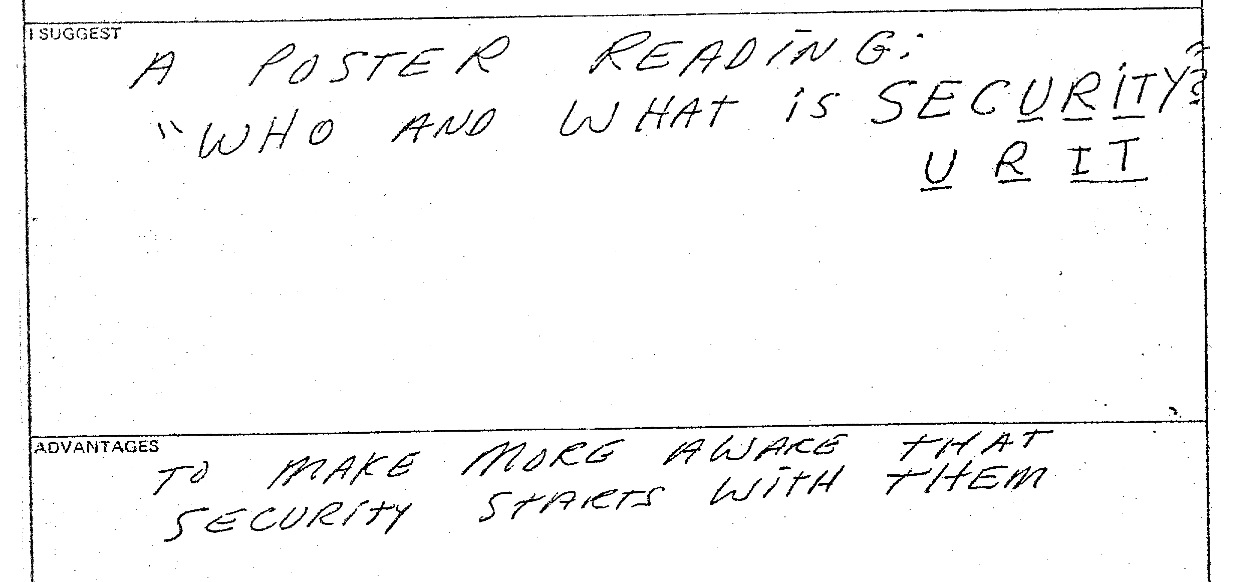 I SUGGEST
A POSTER READING:
"WHO AND WHAT is SECURITY?"
U R IT
ADVANTAGES
TO MAKE MORE AWARE THAT
SECURITY STARTS WITH THEM